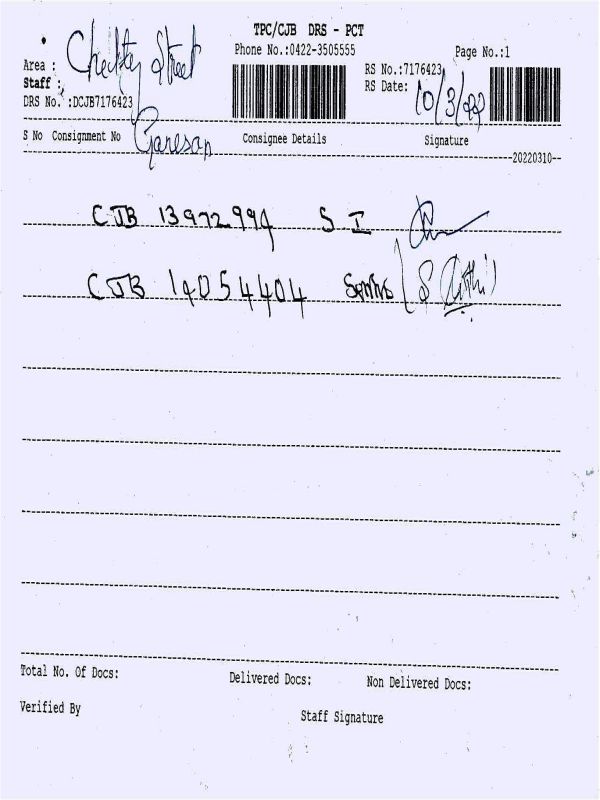 TPC/CJB DRS - PCT
Phone No.:0422-3505555
Page No.:1
Area : Chettey Street
RS No.:7176423
Staff :
RS Date: 10/3/22
DRS No. :DCJB7176423
S No Consignment No Ganesan Consignee Details Signature
--20220310--
CJB 13972994 S I
CJB 14054404
Total No. Of Docs: Delivered Docs: Non Delivered Docs:
Verified By Staff Signature